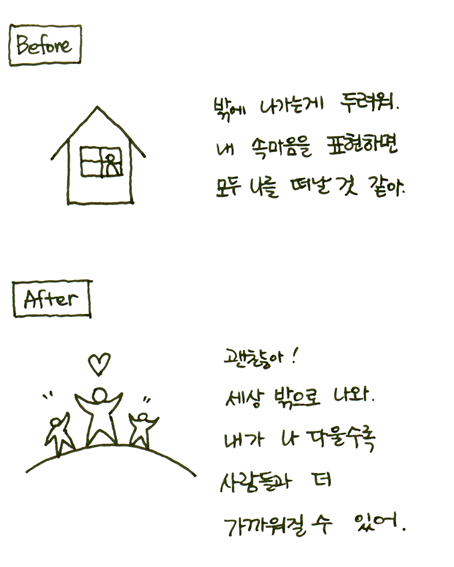 Before
밖에 나가는게 두려워.
내 속마음을 표현하면
모두 나를 떠날 것 같아.
After
괜찮아!
세상 밖으로 나와.
내가 나 다울수록
사람들과 더
가까워질 수 있어.